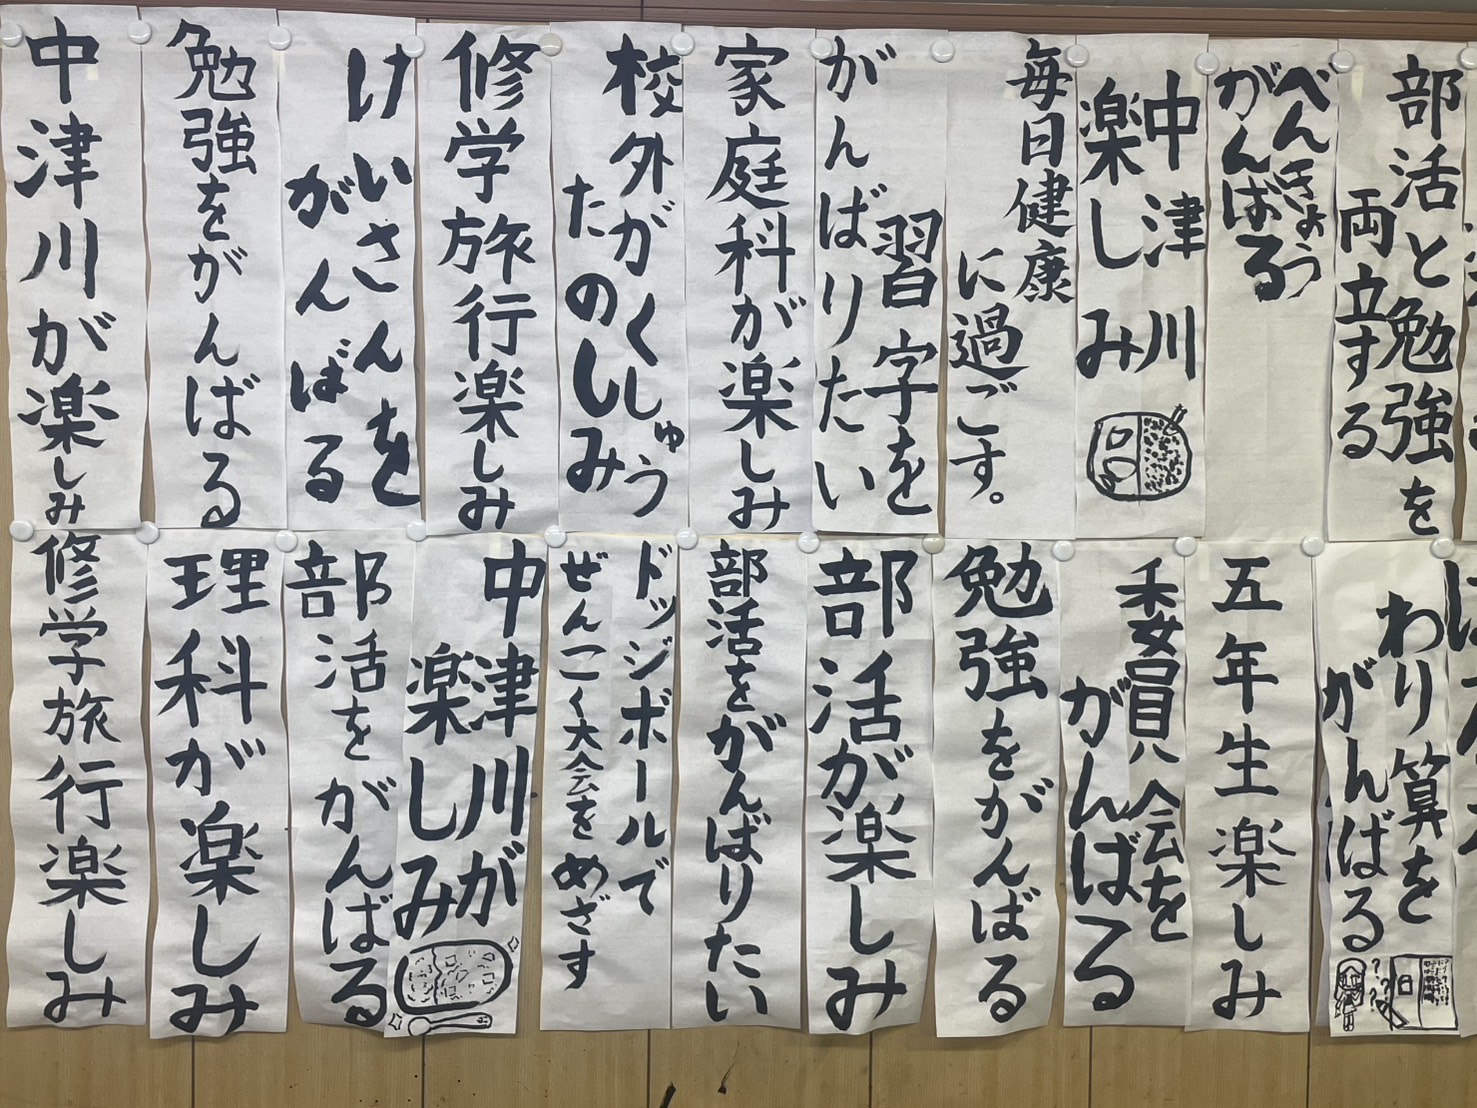 部活と勉強を
両立する
べんきょう
がんばる
中津川
楽しみ
毎日健康
に過ごす。
習字を
がんばりたい
家庭科が楽しみ
校外がくしゅう
たのしみ
修学旅行楽しみ
けいさんを
がんばる
勉強をがんばる
中津川が楽しみ
わり算を
がんばる
五年生楽しみ
委員会を
がんばる
勉強をがんばる
部活が楽しみ
部活をがんばりたい
ドッジボールで
ぜんこく大会をめざす
中津川が
楽しみ
部活を
がんばる
理科が楽しみ
修学旅行楽しみ